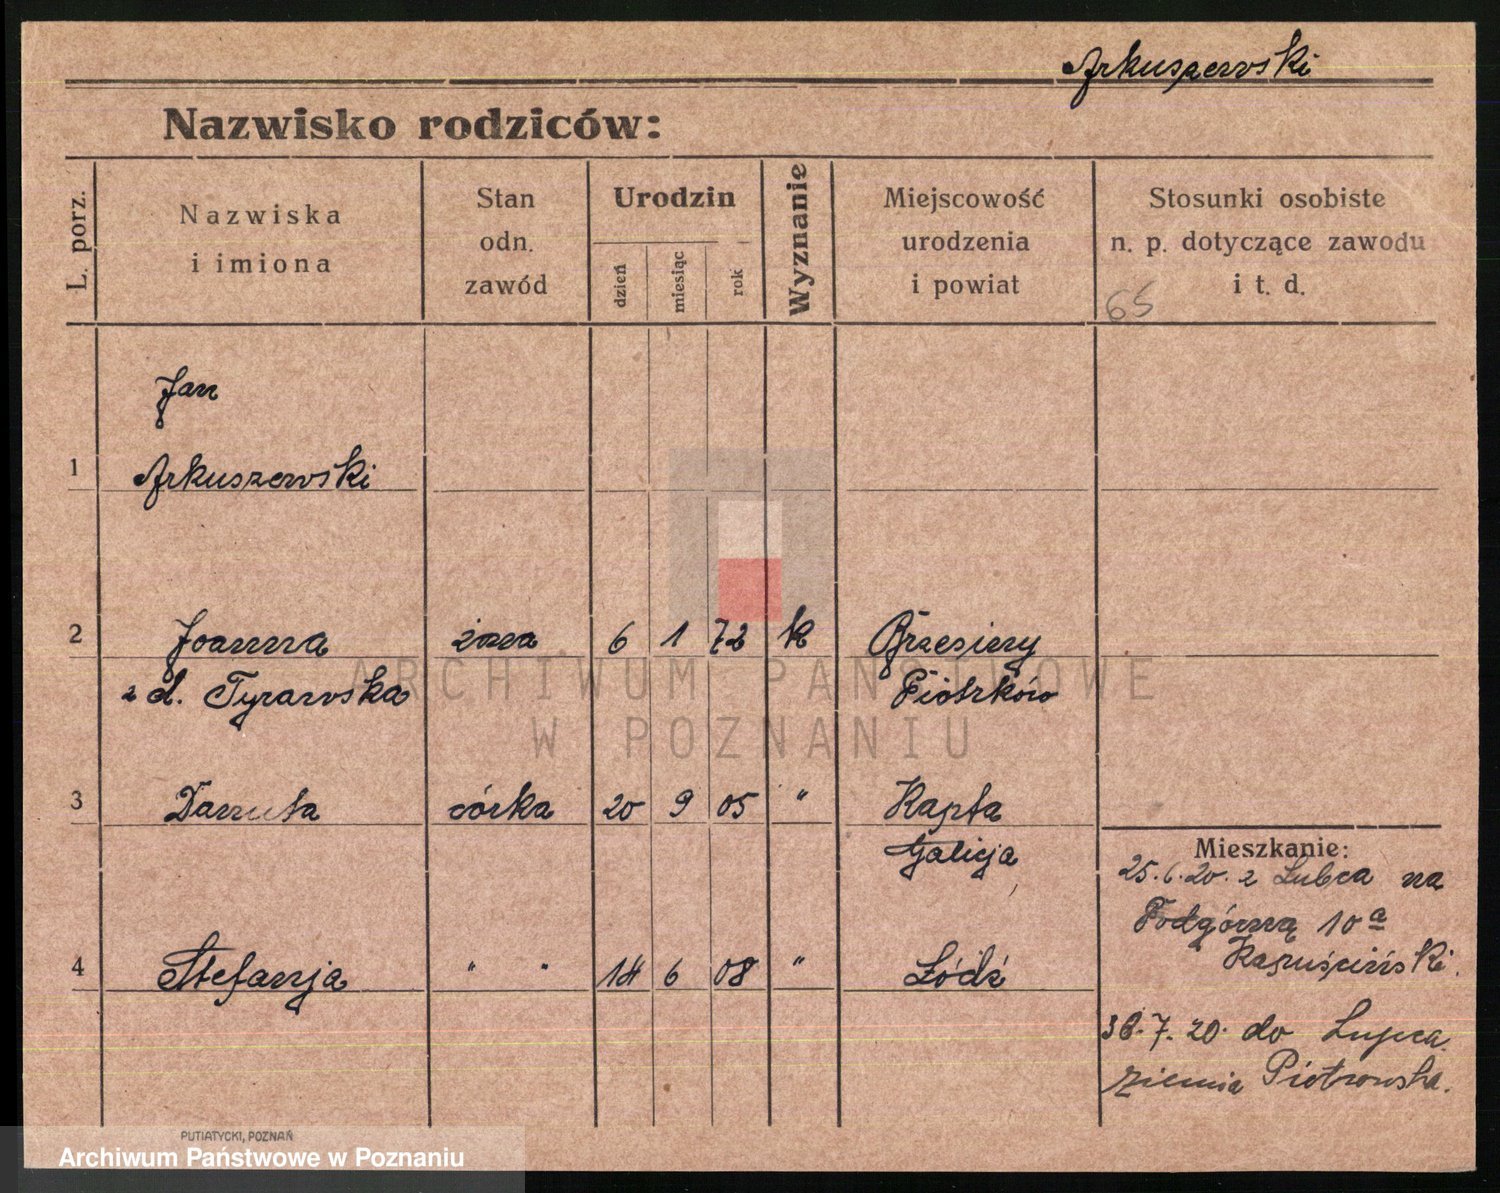 Arkuszewski
Nazwisko rodziców:
L. porz.
Nazwiska
i imiona
Stan
odn.
zawód
Urodzin
dzień
miesiąc
rok
Wyznanie
Miejscowość
urodzenia
i powiat
Stosunki osobiste
n. p. dotyczące zawodu
i t. d.
65
Jan
1 Arkuszewski
2 Joanna żona 6 1 72 k Brzesiny
z d. Tyrawska Piotrków
3 Danuta córka 20 9 05 " Kapta
Galicja
4 Stefanja " " 14 6 08 " Łódź
Mieszkanie:
25.6.20. z Lubca na
Podgórną 10a
Kapuściński.
30.7.20 do Lupca
ziemia Piotrowska.
ARCHIWUM PAŃSTWOWE
W POZNANIU
PUTIATYCKI, POZNAŃ
Archiwum Państwowe w Poznaniu